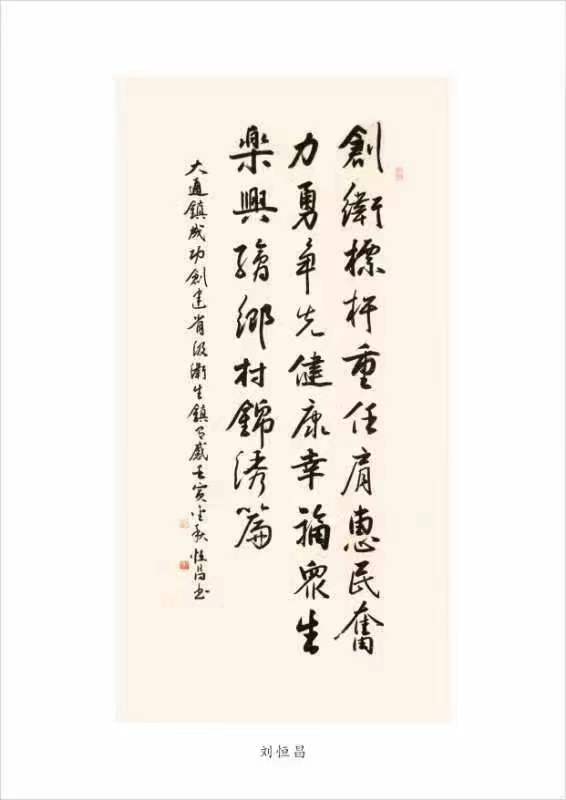 創衛標杆重任肩惠民奮
力勇争先健康幸福眾生
樂興繪鄉村錦綉篇
大通鎮成功創建省級衛生鎮有感壬寅金秋恒昌書
刘恒昌